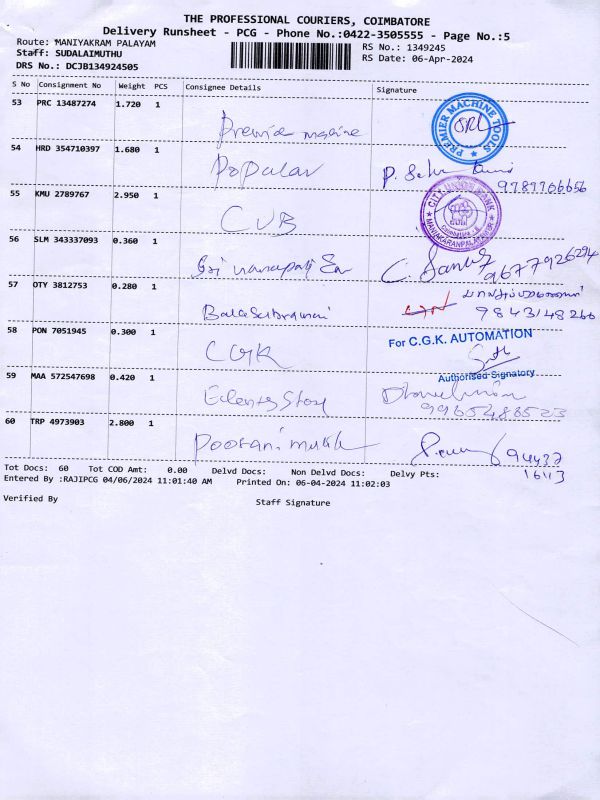 THE PROFESSIONAL COURIERS, COIMBATORE
Delivery Runsheet - PCG - Phone No.:0422-3505555 - Page No.:5
Route: MANIYAKRAM PALAYAM
RS No.: 1349245
Staff: SUDALAIMUTHU
RS Date: 06-Apr-2024
DRS No.: DCJB134924505
S No Consignment No Weight PCS Consignee Details Signature
53 PRC 13487274 1.720 1
Premier machine
PREMIER MACHINE TOOLS
54 HRD 354710397 1.680 1
Popular P.
9787766656
55 KMU 2789767 2.950 1
CUB
CITY UNION BANK
56 SLM 343337093 0.360 1
Sri C.
9677926294
57 OTY 3812753 0.280 1
Balasubramani
9843148266
58 PON 7051945 0.300 1
CGK
For C.G.K. AUTOMATION
Authorised Signatory
59 MAA 572547698 0.420 1
9965488523
60 TRP 4973903 2.800 1
Poorani 94437
16113
Tot Docs: 60 Tot COD Amt: 0.00 Delvd Docs: Non Delvd Docs: Delvy Pts:
Entered By :RAJIPCG 04/06/2024 11:01:40 AM Printed On: 06-04-2024 11:02:03
Verified By Staff Signature